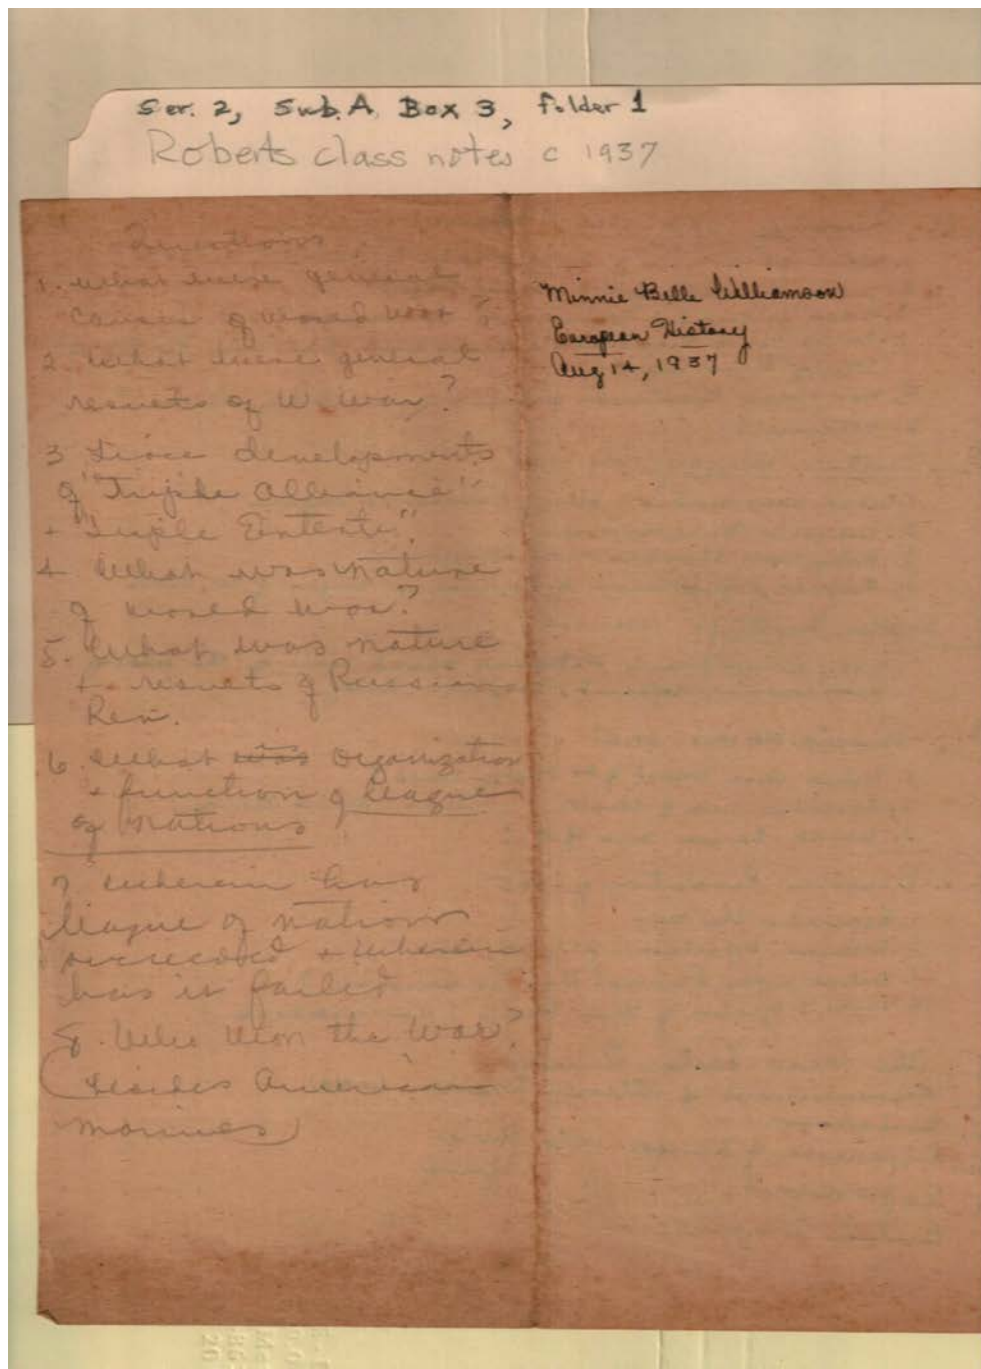 Ser. 2, Sub. A Box 3, folder 1
Roberts class notes c 1937
Questions
1. What were general
causes of World War?
2. What were general
results of W. War?
3 Trace developments
of "Triple Alliance"
+ "Triple Entente".
4. What was nature
of World War?
5. What was nature
+ results of Russian
Rev.
6. What was organization
+ function of League
of Nations
7 Wherein has
League of Nations
succeeded + wherein
has it failed
8. Who won the War?
(besides American
marines)
Minnie Belle Williamson
European History
Aug 14, 1937